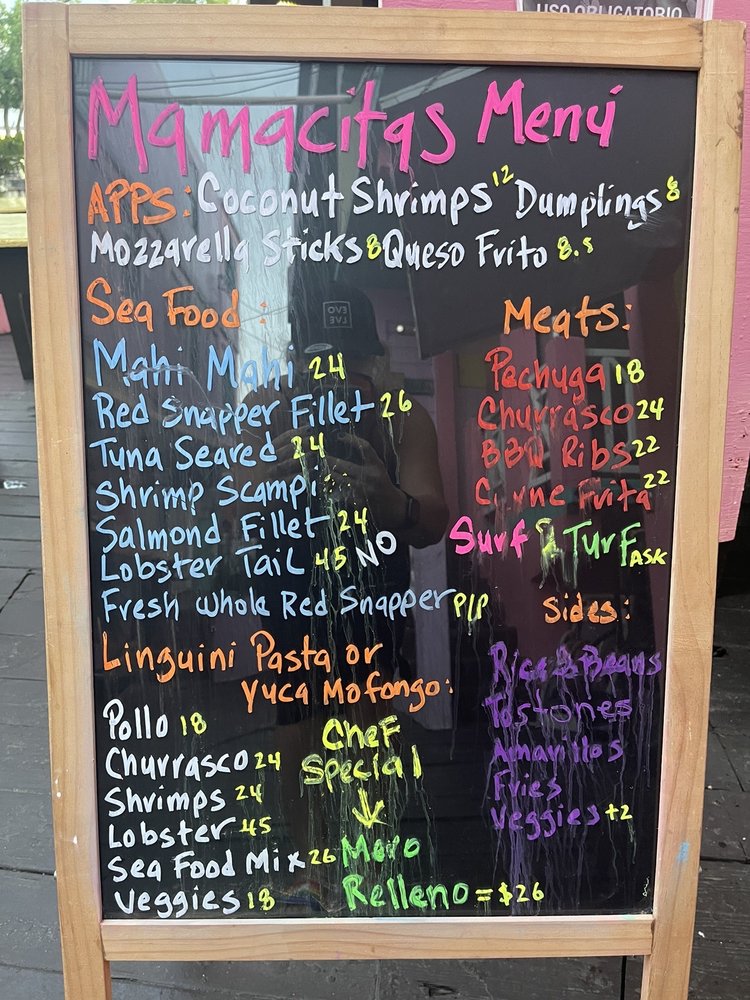 USO OBLIGATORIO
Mamacitas Menú
APPS: Coconut Shrimps 12 Dumplings 8
Mozzarella Sticks 8 Queso Frito 8.5
Sea Food:
Mahi Mahi 24
Red Snapper Fillet 26
Tuna Seared 24
Shrimp Scampi
Salmond Fillet 24
Lobster Tail 45 NO
Fresh whole Red Snapper P/P
Meats:
Pechuga 18
Churrasco 24
BBQ Ribs 22
Carne Frita 22
Surf & Turf ASK
Sides:
Rice & Beans
Tostones
Amarillos
Fries
Veggies +2
Linguini Pasta or
Yuca Mofongo:
Pollo 18
Churrasco 24
Shrimps 24
Lobster 45
Sea Food Mix 26
Veggies 18
Chef
Special
Mero
Relleno = $26
EVO
LVE